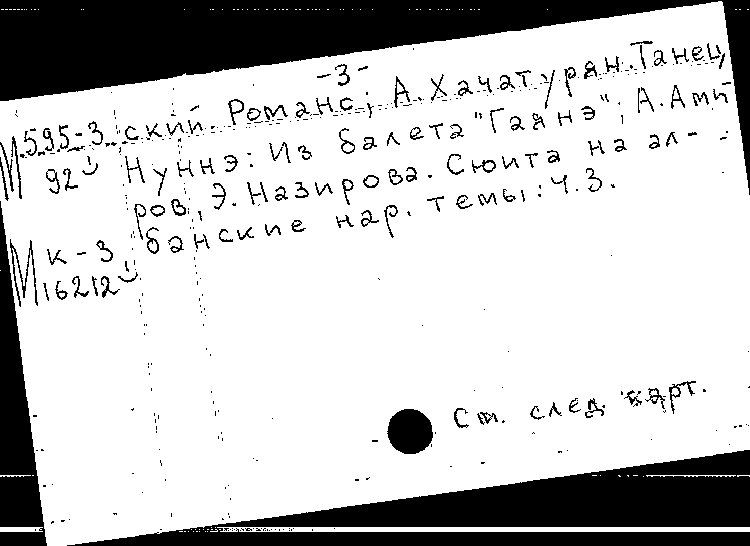 -3-
М 595-3 ский. Романс; А. Хачатурян. Танец
92 Нуннэ: Из балета "Гаянэ"; А. Ами
ров, Э. Назирова. Сюита на ал-
М к-3 банские нар. темы: Ч.3.
16212
См. след. карт.